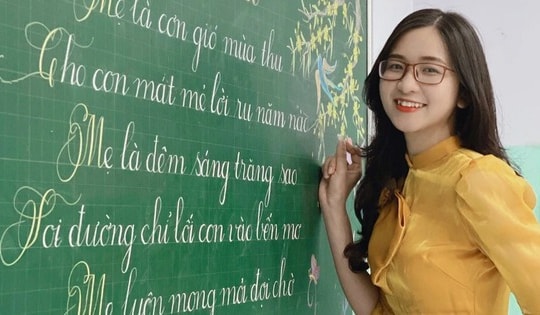 Mẹ là cơn gió mùa thu
Cho con mát mẻ lời ru năm nào
Mẹ là đêm sáng trăng sao
Soi đường chỉ lối con vào bến mơ
Mẹ luôn mong mỏi đợi chờ